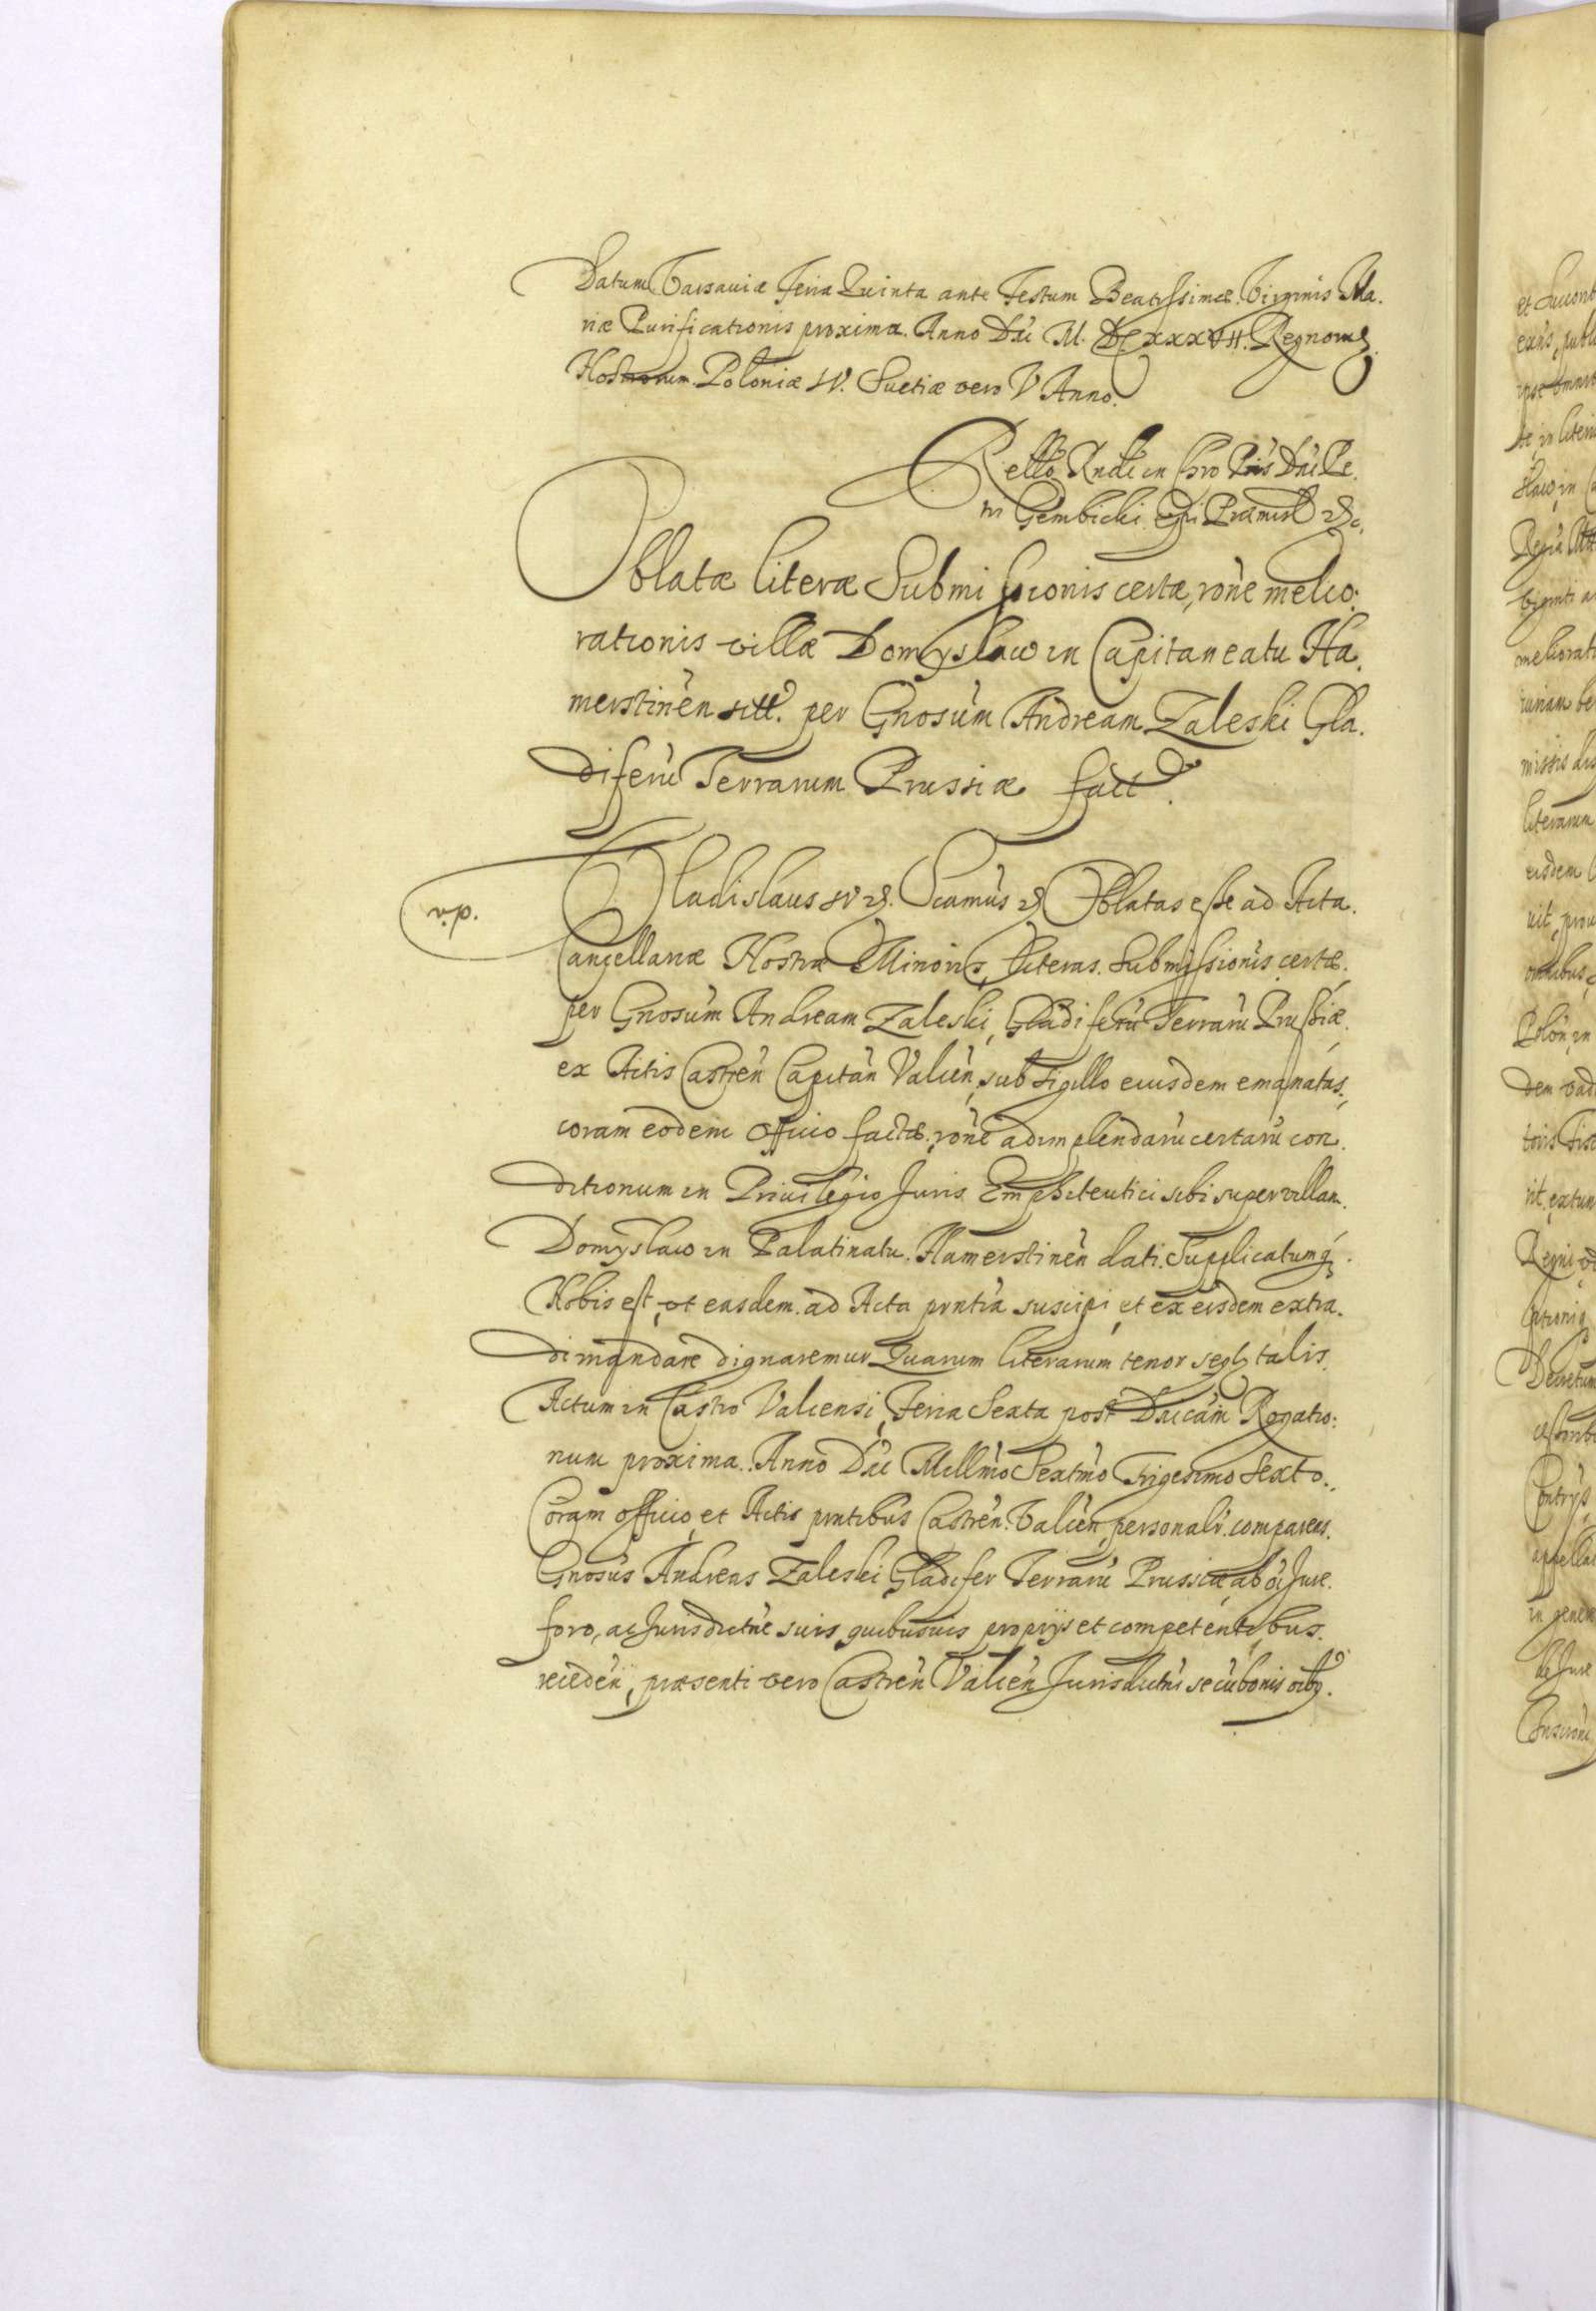 Datum Varsaviæ Feria Quinta ante Festum Beatissimæ Virginis Ma.
riæ Purificationis proxima. Anno Dni M. DCXXXVII. Regnorum
Nostrorum Poloniæ IV. Suetiæ vero V Anno.
Rello Rndi in Chro Pris Dni Pe.
tri Gembicki Epi Præmisl &c.
Oblatæ literæ Submissionis certæ, rõne melio:
rationis villæ Domyslaw in Capitaneatu Ha.
merstinẽn sitt. per Gnosum Andream Zaleski Gla.
diferũ Terrarum Prussiæ fact.
v.p.
Vladislaus IV &. Scamus & Oblatas esse ad Acta.
Cancellariæ Nostræ Minoris, Literas Submissionis certæ.
per Gnosum Andream Zaleski, Gladiferũ Terrarũ Prussiæ,
ex Actis Castrẽn Capitãn Valcẽn, sub sigillo eiusdem emanatas,
coram eodem Officio factæ, rõne adimplendarũ certarũ con.
ditionum in Privilegio Juris Emphiteutici sibi super villam.
Domyslaw in Palatinatu Hamerstinẽn dati. Supplicatumq3
Nobis est, ut easdem ad Acta prntia suscipi, et ex eisdem extra.
di mandare dignaremur Quarum literarum tenor seqr talis.
Actum in Castro Valcensi, Feria Sexta post Dnicam Rogatio:
num proxima. Anno Dni Millmo Sextmo Trigesimo Sexto.
Coram officio et Actis prntibus Castrẽn. Valcẽn, personalr. comparens.
Gnosus Andreas Zaleski Gladifer Terrarũ Prussiæ, ab oi Jure.
foro, ac Jurisdictne suis quibusuis proprijs et competentibus.
recedẽn, præsenti vero Castrẽn Valcẽn Jurisdictni se cũ bonis oibq.